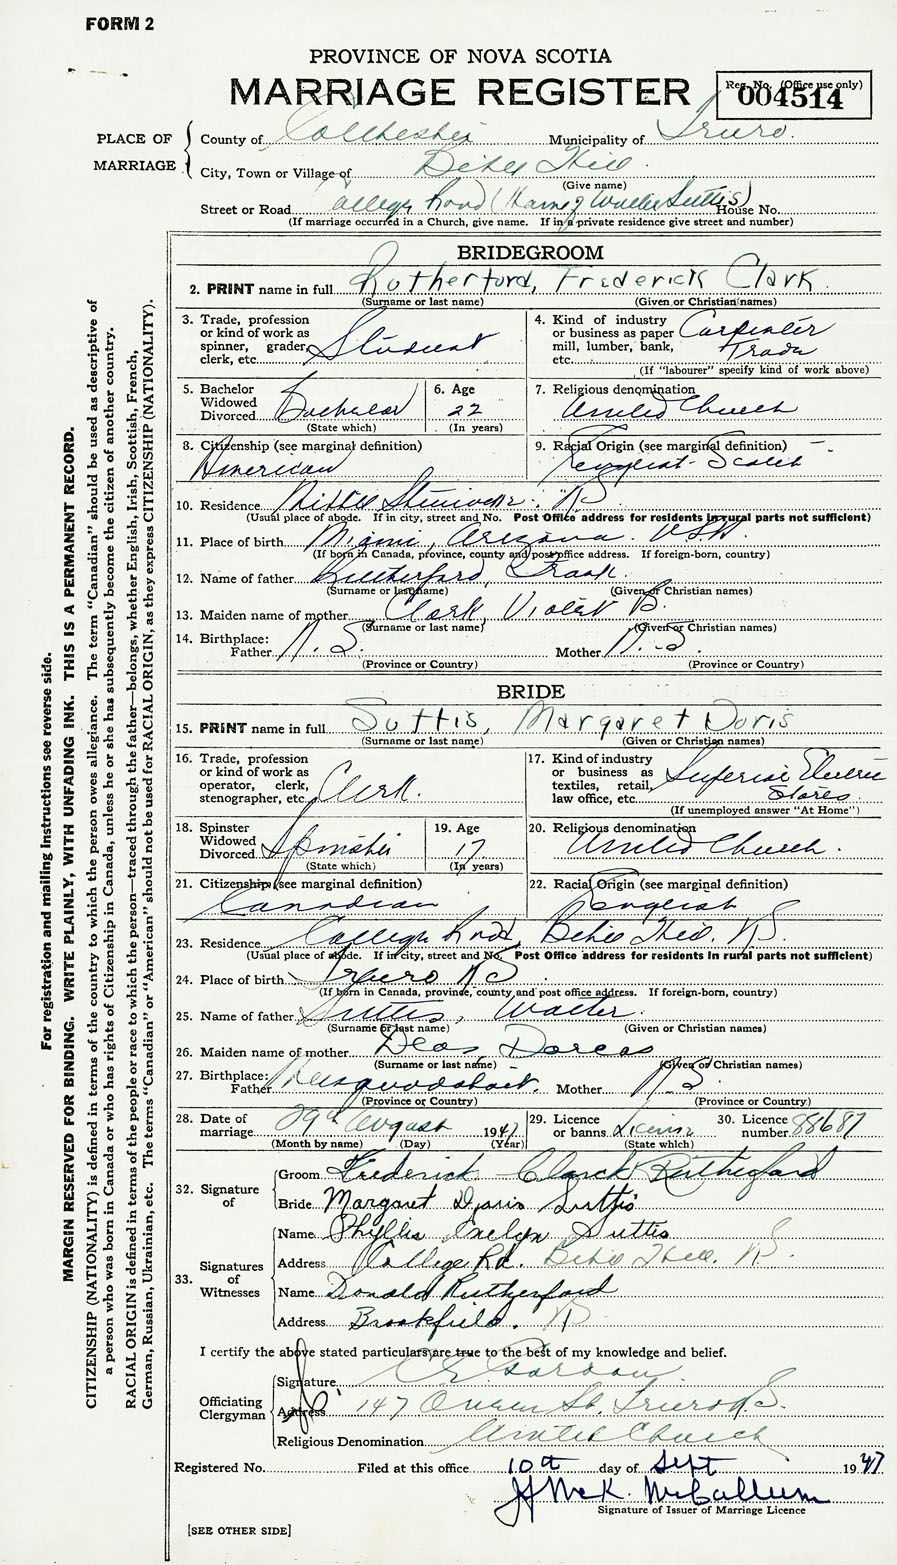 FORM 2
PROVINCE OF NOVA SCOTIA
MARRIAGE REGISTER
Reg. No. (Office use only)
004514
PLACE OF MARRIAGE
County of Colchester Municipality of Truro.
City, Town or Village of Bible Hill.
(Give name)
Street or Road College Road (Home of Walter Suttis) House No.
(If marriage occurred in a Church, give name. If in a private residence give street and number)
BRIDEGROOM
2. PRINT name in full Rutherford, Frederick Clark
(Surname or last name) (Given or Christian names)
3. Trade, profession or kind of work as spinner, grader, clerk, etc. Student
4. Kind of industry or business as paper mill, lumber, bank, etc. Carpenter Trade
(If "labourer" specify kind of work above)
5. Bachelor Widowed Divorced Bachelor
(State which)
6. Age 22
(In years)
7. Religious denomination United Church
8. Citizenship (see marginal definition) American
9. Racial Origin (see marginal definition) English-Scotch
10. Residence Middle Stewiacke. N.S.
(Usual place of abode. If in city, street and No. Post Office address for residents in rural parts not sufficient)
11. Place of birth Miami, Arizona. USA.
(If born in Canada, province, county and post office address. If foreign-born, country)
12. Name of father Rutherford, Frank.
(Surname or last name) (Given or Christian names)
13. Maiden name of mother Clark, Violet B.
(Surname or last name) (Given or Christian names)
14. Birthplace:
Father N.S. Mother N.S.
(Province or Country) (Province or Country)
BRIDE
15. PRINT name in full Suttis, Margaret Doris
(Surname or last name) (Given or Christian names)
16. Trade, profession or kind of work as operator, clerk, stenographer, etc. Clerk.
17. Kind of industry or business as textiles, retail, law office, etc. Superior Electric Stores.
(If unemployed answer "At Home")
18. Spinster Widowed Divorced Spinster
(State which)
19. Age 17
(In years)
20. Religious denomination United Church.
21. Citizenship (see marginal definition) Canadian
22. Racial Origin (see marginal definition) English
23. Residence College Road, Bible Hill. N.S.
(Usual place of abode. If in city, street and No. Post Office address for residents in rural parts not sufficient)
24. Place of birth Truro N.S.
(If born in Canada, province, county and post office address. If foreign-born, country)
25. Name of father Suttis, Walter.
(Surname or last name) (Given or Christian names)
26. Maiden name of mother Dorcas
(Surname or last name) (Given or Christian names)
27. Birthplace:
Father Musquodoboit. Mother N.S.
(Province or Country) (Province or Country)
28. Date of marriage 29th August 1947
(Month by name) (Day) (Year)
29. Licence or banns Licence
(State which)
30. Licence number 88687
32. Signature of
Groom Frederick Clarck Rutherford
Bride Margaret Doris Suttis
33. Signatures of Witnesses
Name Phyllis Evelyn Suttis
Address College Rd. Bible Hill. N.S.
Name Donald Rutherford
Address Brookfield. N.S.
I certify the above stated particulars are true to the best of my knowledge and belief.
Officiating Clergyman
Signature Gordon
Address 147 Queen St. Truro N.S.
Religious Denomination United Church
Registered No. Filed at this office 10th day of Sept 1947
McK. McCallum
Signature of Issuer of Marriage Licence
[SEE OTHER SIDE]
For registration and mailing Instructions see reverse side.
MARGIN RESERVED FOR BINDING. WRITE PLAINLY, WITH UNFADING INK. THIS IS A PERMANENT RECORD.
CITIZENSHIP (NATIONALITY) is defined in terms of the country to which the person owes allegiance. The term "Canadian" should be used as descriptive of
a person who was born in Canada or who has rights of Citizenship in Canada, unless he or she has subsequently become the citizen of another country.
RACIAL ORIGIN is defined in terms of the people or race to which the person—traced through the father—belongs, whether English, Irish, Scottish, French,
German, Russian, Ukrainian, etc. The terms "Canadian" or "American" should not be used for RACIAL ORIGIN, as they express CITIZENSHIP (NATIONALITY).